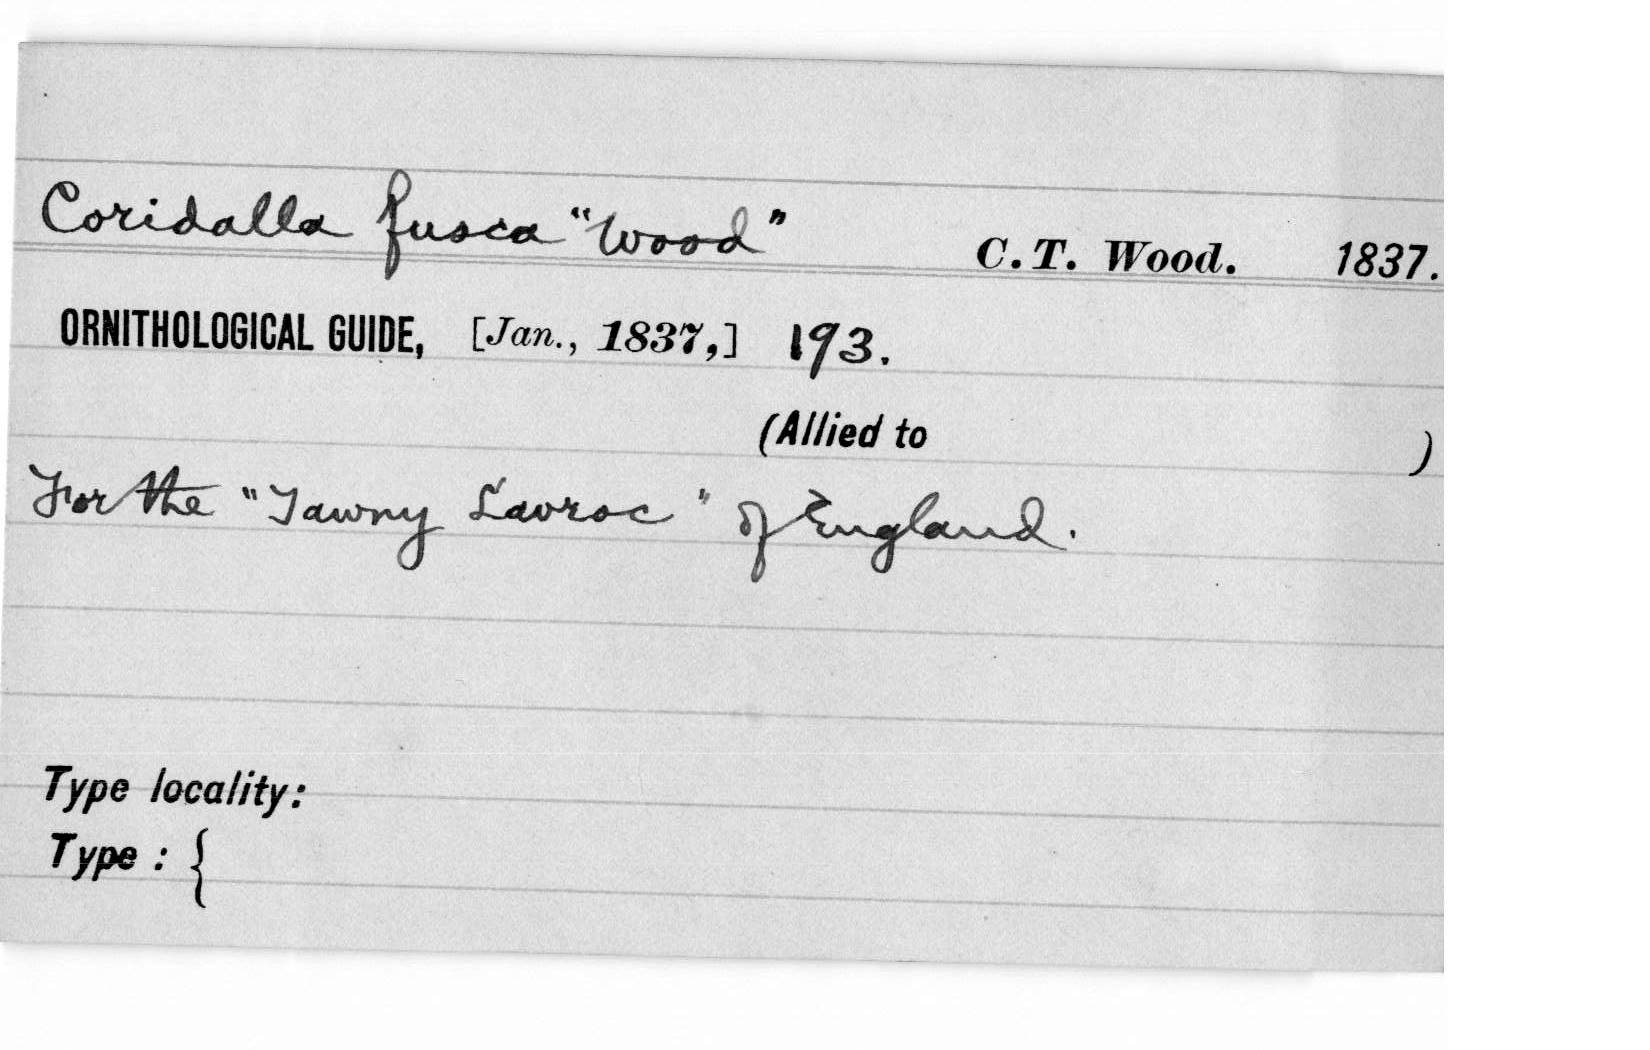 Coridalla fusca "Wood" C. T. Wood. 1837.
ORNITHOLOGICAL GUIDE, [Jan., 1837,] 193.
(Allied to )
For the "Tawny Lavroc" of England.
Type locality:
Type : {